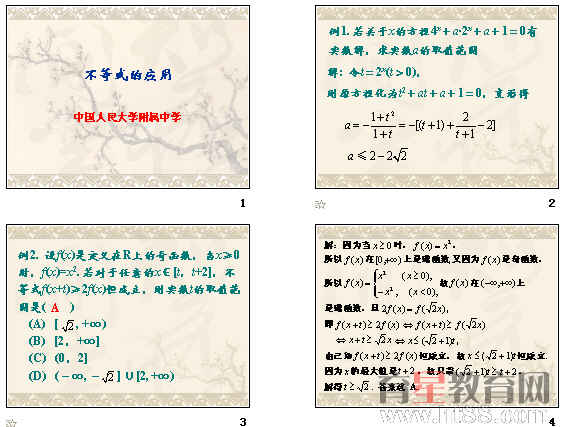 不等式的应用
中国人民大学附属中学
1
例1. 若关于x的方程4ˣ+a·2ˣ+a+1=0有
实数解，求实数a的取值范围
解：令t=2ˣ(t>0)，
则原方程化为t²+at+a+1=0，变形得
a=-\frac{1+t²}{1+t}=-[(t+1)+\frac{2}{t+1}-2]
a≤2-2√2
2
例2. 设f(x)是定义在R上的奇函数，当x≥0
时，f(x)=x². 若对于任意的x∈[t，t+2]，不
等式f(x+t)≥2f(x)恒成立，则实数t的取值范
围是( A )
(A) [√2, +∞)
(B) [2，+∞]
(C) (0，2]
(D) (-∞，-√2]∪[2, +∞)
3
解：因为当x≥0时，f(x)=x²，
所以f(x)在[0,+∞)上是增函数又因为f(x)是奇函数，
所以f(x)={x² (x≥0), -x², (x<0), 故f(x)在(-∞,+∞)上
是增函数，且2f(x)=f(√2x)，
即f(x+t)≥2f(x)⇔f(x+t)≥f(√2x)
⇔x+t≥√2x⇔x≤(√2+1)t，
由已知f(x+t)≥2f(x)恒成立，故x≤(√2+1)t恒成立.
因为x的最大值是t+2，故只需(√2+1)t≥t+2，
解得t≥√2. 答案选A
4
青星教育网